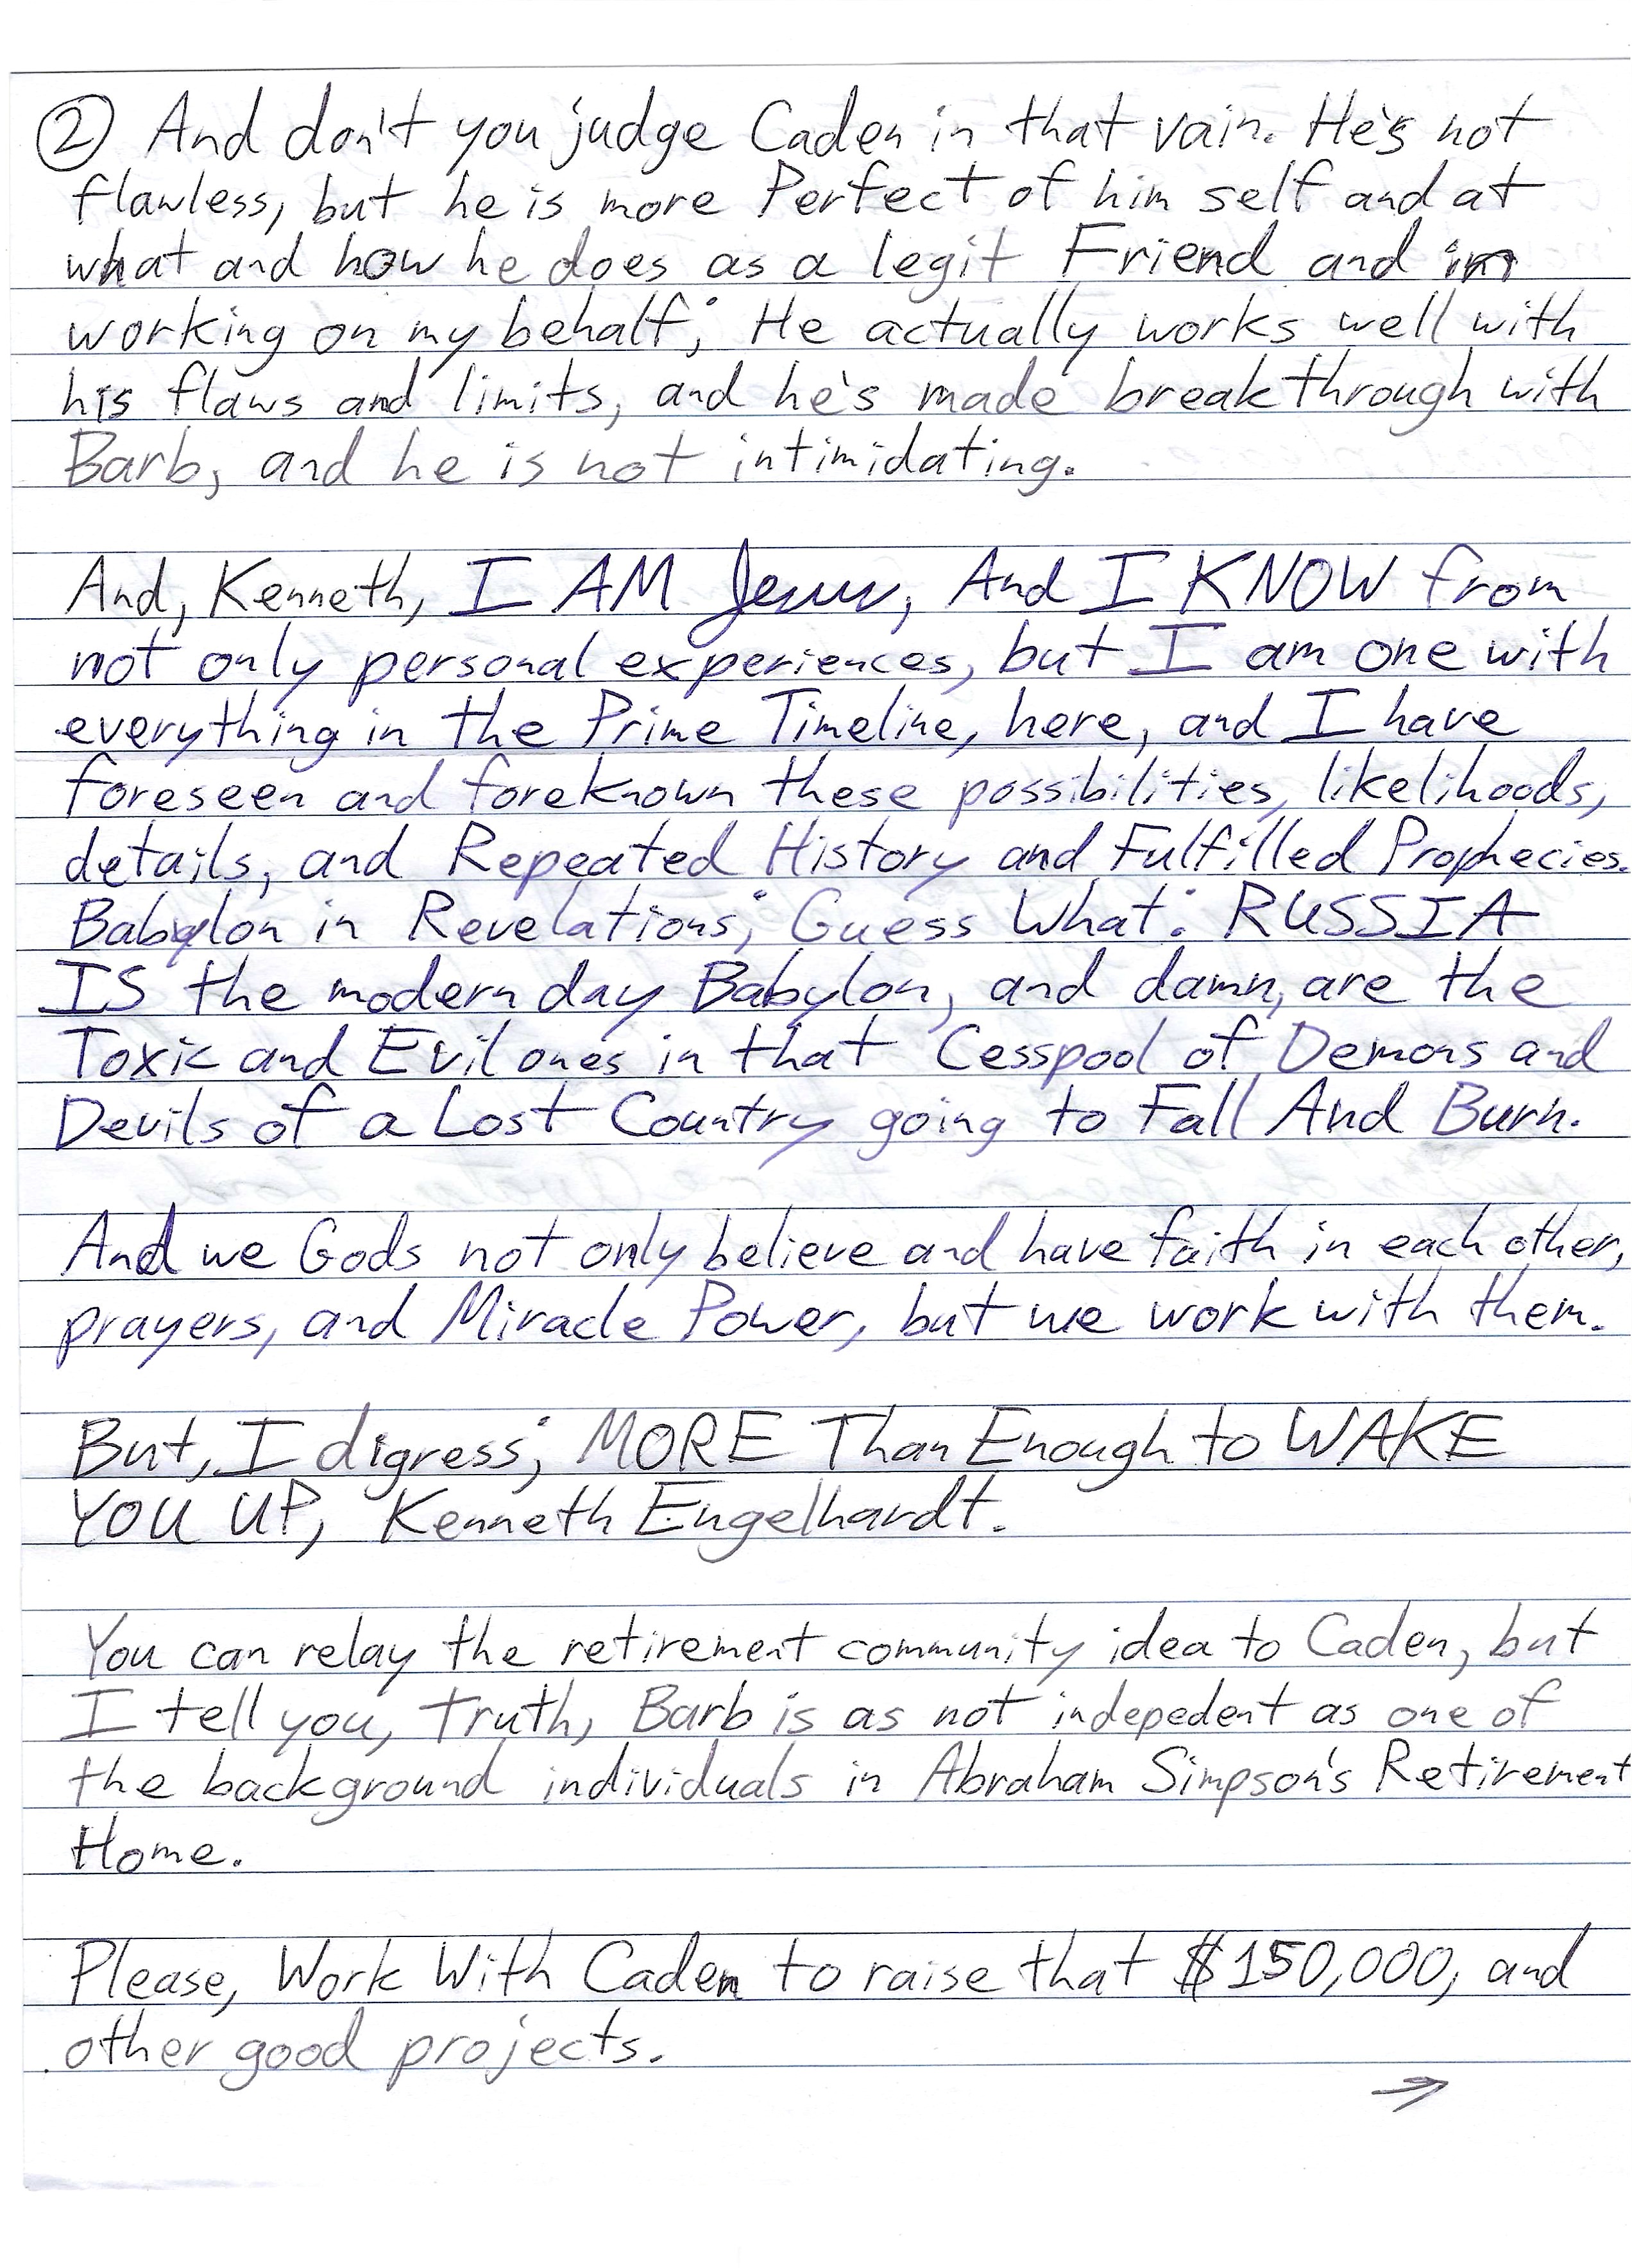 ② And don't you judge Caden in that vain. He's not
flawless, but he is more Perfect of him self and at
what and how he does as a legit Friend and in
working on my behalf; He actually works well with
his flaws and limits, and he's made breakthrough with
Barb, and he is not intimidating.
And, Kenneth, I AM Jesus, And I KNOW from
not only personal experiences, but I am one with
everything in the Prime Timeline, here, and I have
foreseen and foreknown these possibilities, likelihoods,
details, and Repeated History and Fulfilled Prophecies.
Babylon in Revelations; Guess What: RUSSIA
IS the modern day Babylon, and damn, are the
Toxic and Evil ones in that Cesspool of Demons and
Devils of a Lost Country going to Fall And Burn.
And we Gods not only believe and have faith in each other,
prayers, and Miracle Power, but we work with them.
But, I digress; MORE Than Enough to WAKE
YOU UP, Kenneth Engelhardt.
You can relay the retirement community idea to Caden, but
I tell you, truth, Barb is as not indepedent as one of
the background individuals in Abraham Simpson's Retirement
Home.
Please, Work With Caden to raise that $150,000, and
other good projects.
→